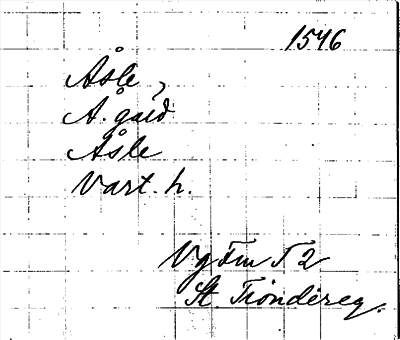 1546
Åsle,
A. gård
Åsle
Vart. h.
Vg Fm 52
St. Tröndereg.